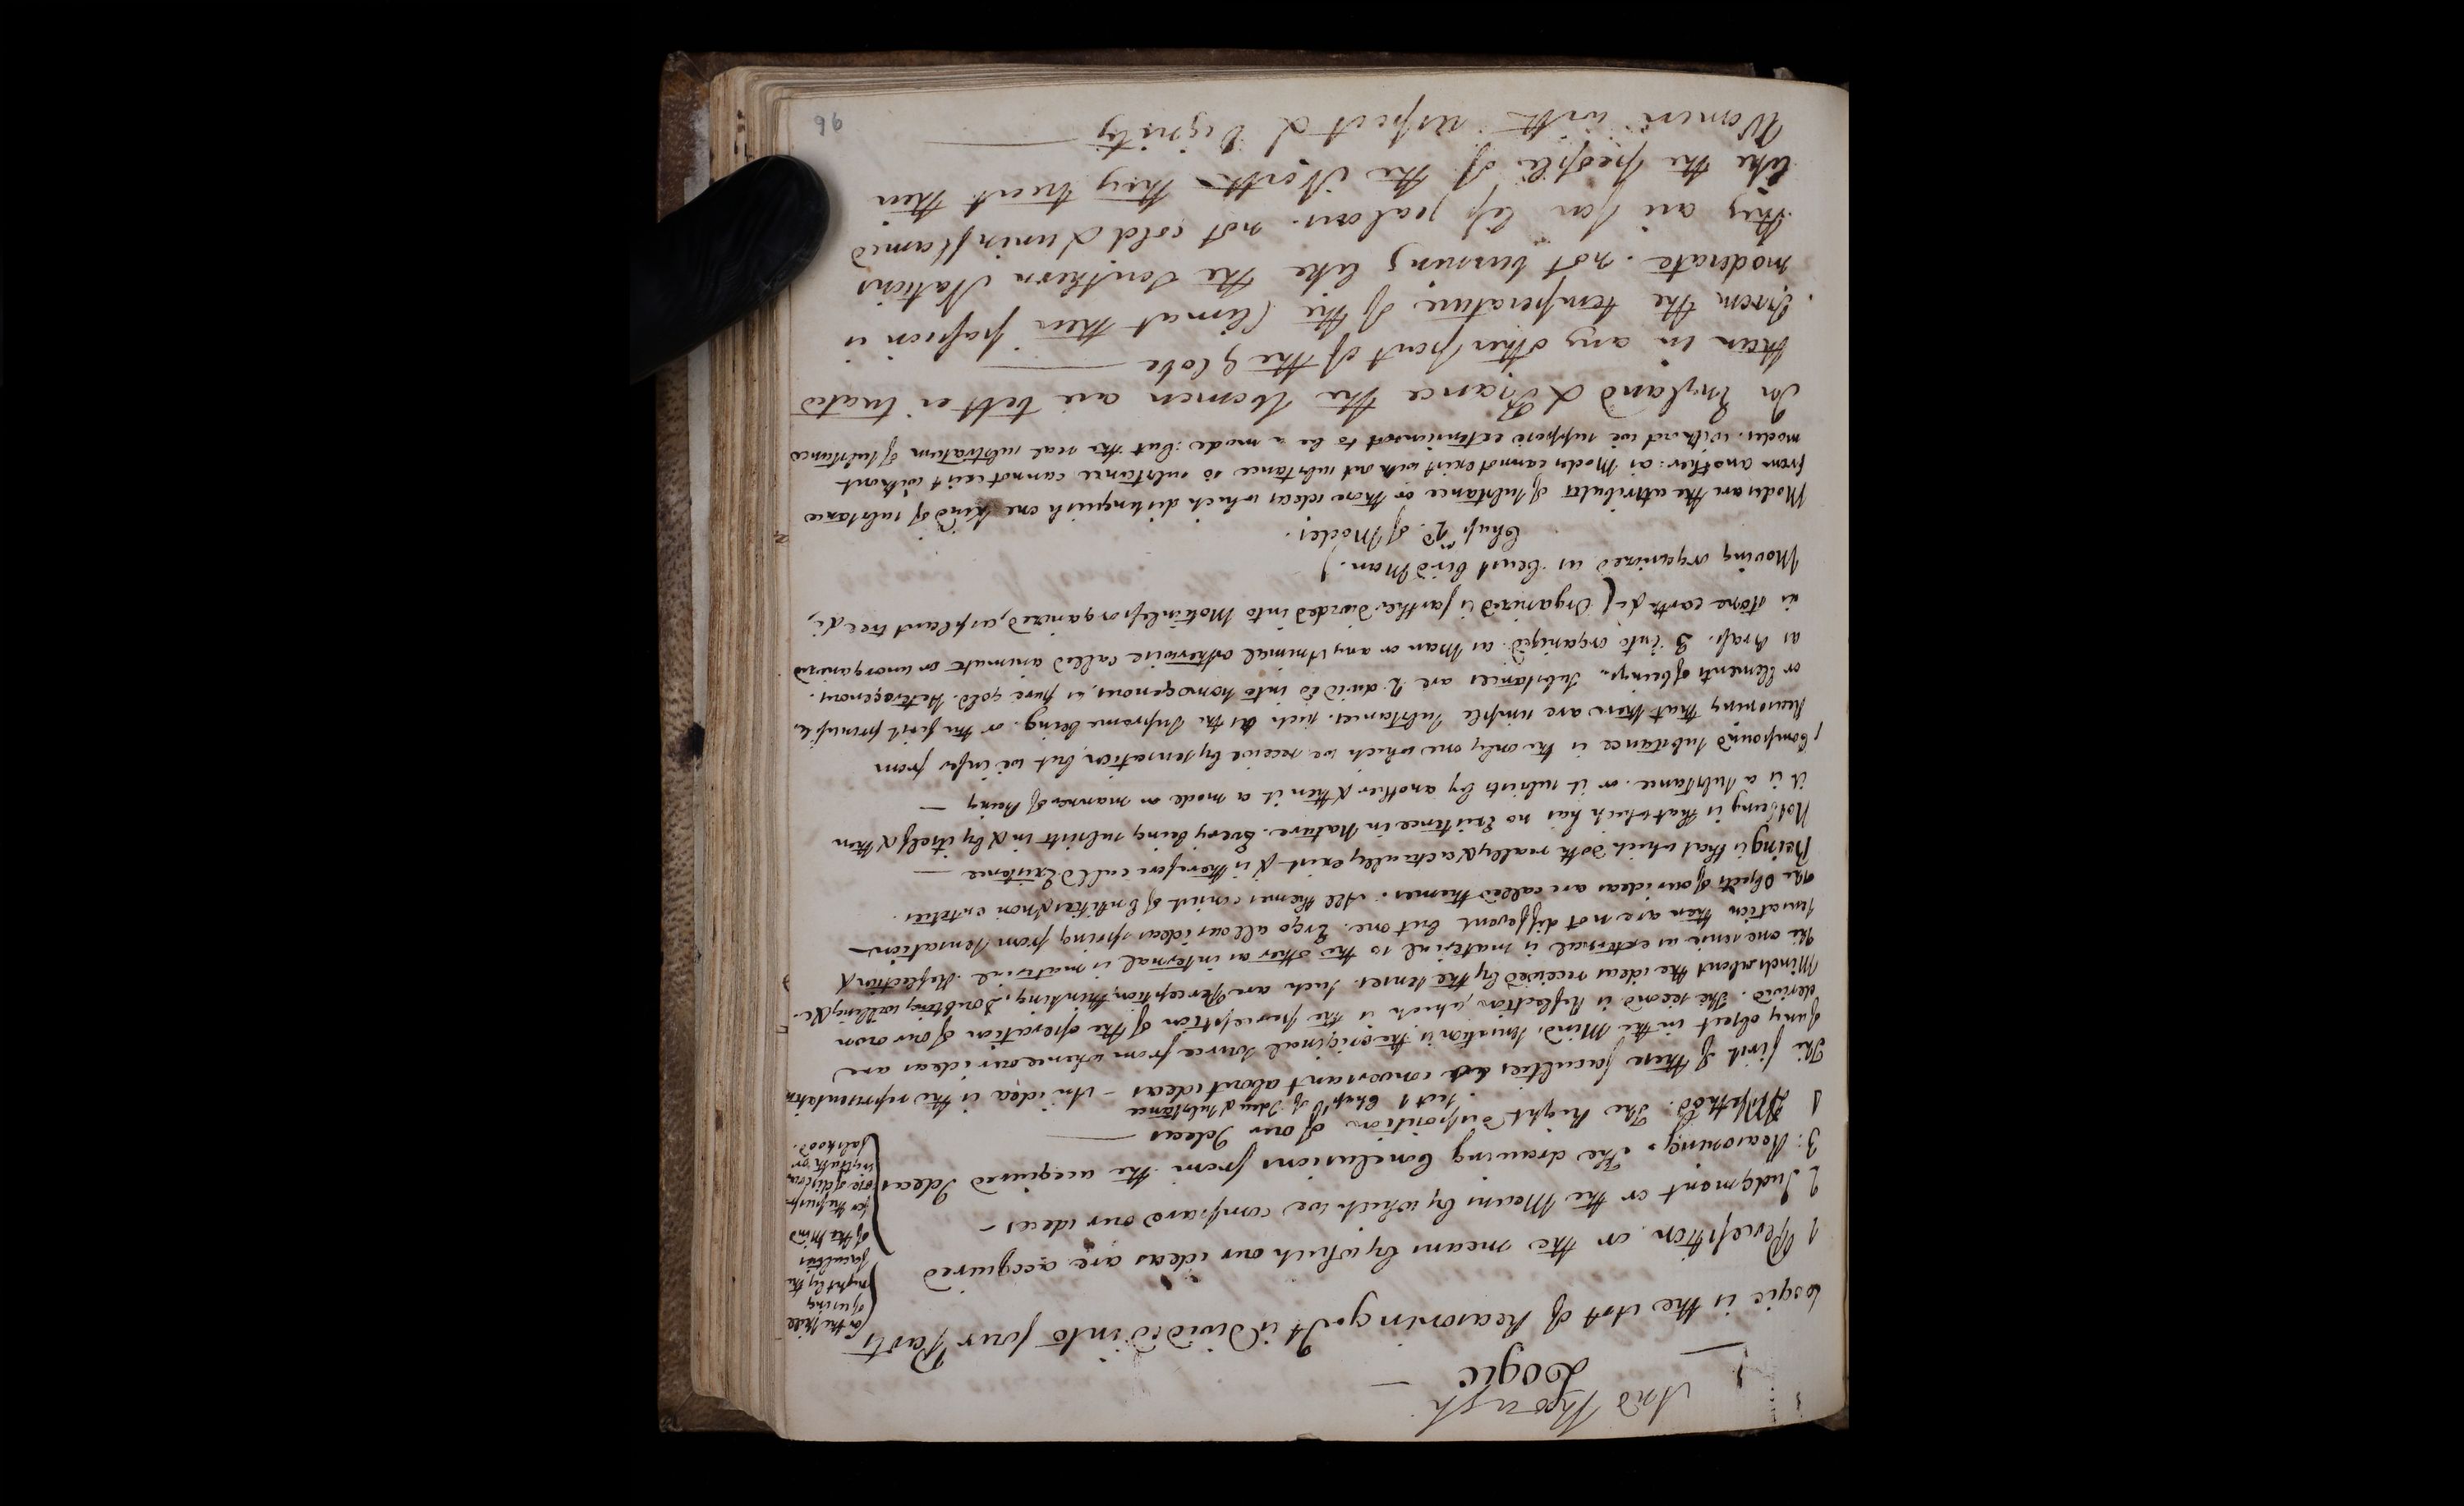 And Though
Logic
Logic is the Art of Reasoning. It is Divided into four Parts
(or the skill
of using
right by the
faculties
of the Mind
for the purp-
ose of discern-
ing truth or
falshood.
1 Perception or the means by which our ideas are acquired
2 Judgment or the Means by which we compare our ideas –
3: Reasoning. The drawing Conclusions from the acquired Ideas
4 Method. The Right Disposition of our Ideas
Sect 1 Chap 1 of Idea & Substance
The first of these faculties conversant about ideas – An idea is the representation
of any object in the Mind. Sensation is the original source from whence our ideas are
derived. The second is Reflection, which is the perception of the operation of our own
Minds about the ideas received by the senses. Such are Perception, thinking, Doubting, willing &c.
the one sense as external is material so the other as internal is material. Reflection &
sensation then are not different but one. Ergo all our ideas spring from Sensation –
The Objects of our ideas are called themes. All themes consist of Entities & non entities.
Being is that which doth really & actually exist & is therefore call'd Existence –
Not being is that which has no Existence in Nature. Every being subsists in & by itself & then
it is a Substance. or it subsists by another & then it a mode or manner of being –
Compound substance is the only one which we receive by sensation, but we infer from
Reasoning that there are simple Substances. such as the Supreme being. or the first principles
or Elements of beings. Substances are 2. divided into homogenous, as pure gold. Heterogenous.
as Brass. 3 into organized. as Man or any Animal otherwise called animate or unorganized
as stone earth &c (Organized is farther divided into Motionless organized, as plant tree &c,
Moving organized as Beast Bird Man.)
Chap 2d of Modes.
Modes are the attributes of substance or those ideas which distinguish one kind of substance
from another: as Modes cannot exist without substance so substance cannot exist without
modes. without we suppose extension not to be a mode: but the real substratum of substance
In England & France the Women are better treated
than in any other part of the globe
From the temperature of the Climat their passion is
moderate. not burning like the Southern Nations
they are far less jealous. not cold & uninflamed
like the people of the North they treat their
Women with respect & Dignity
96